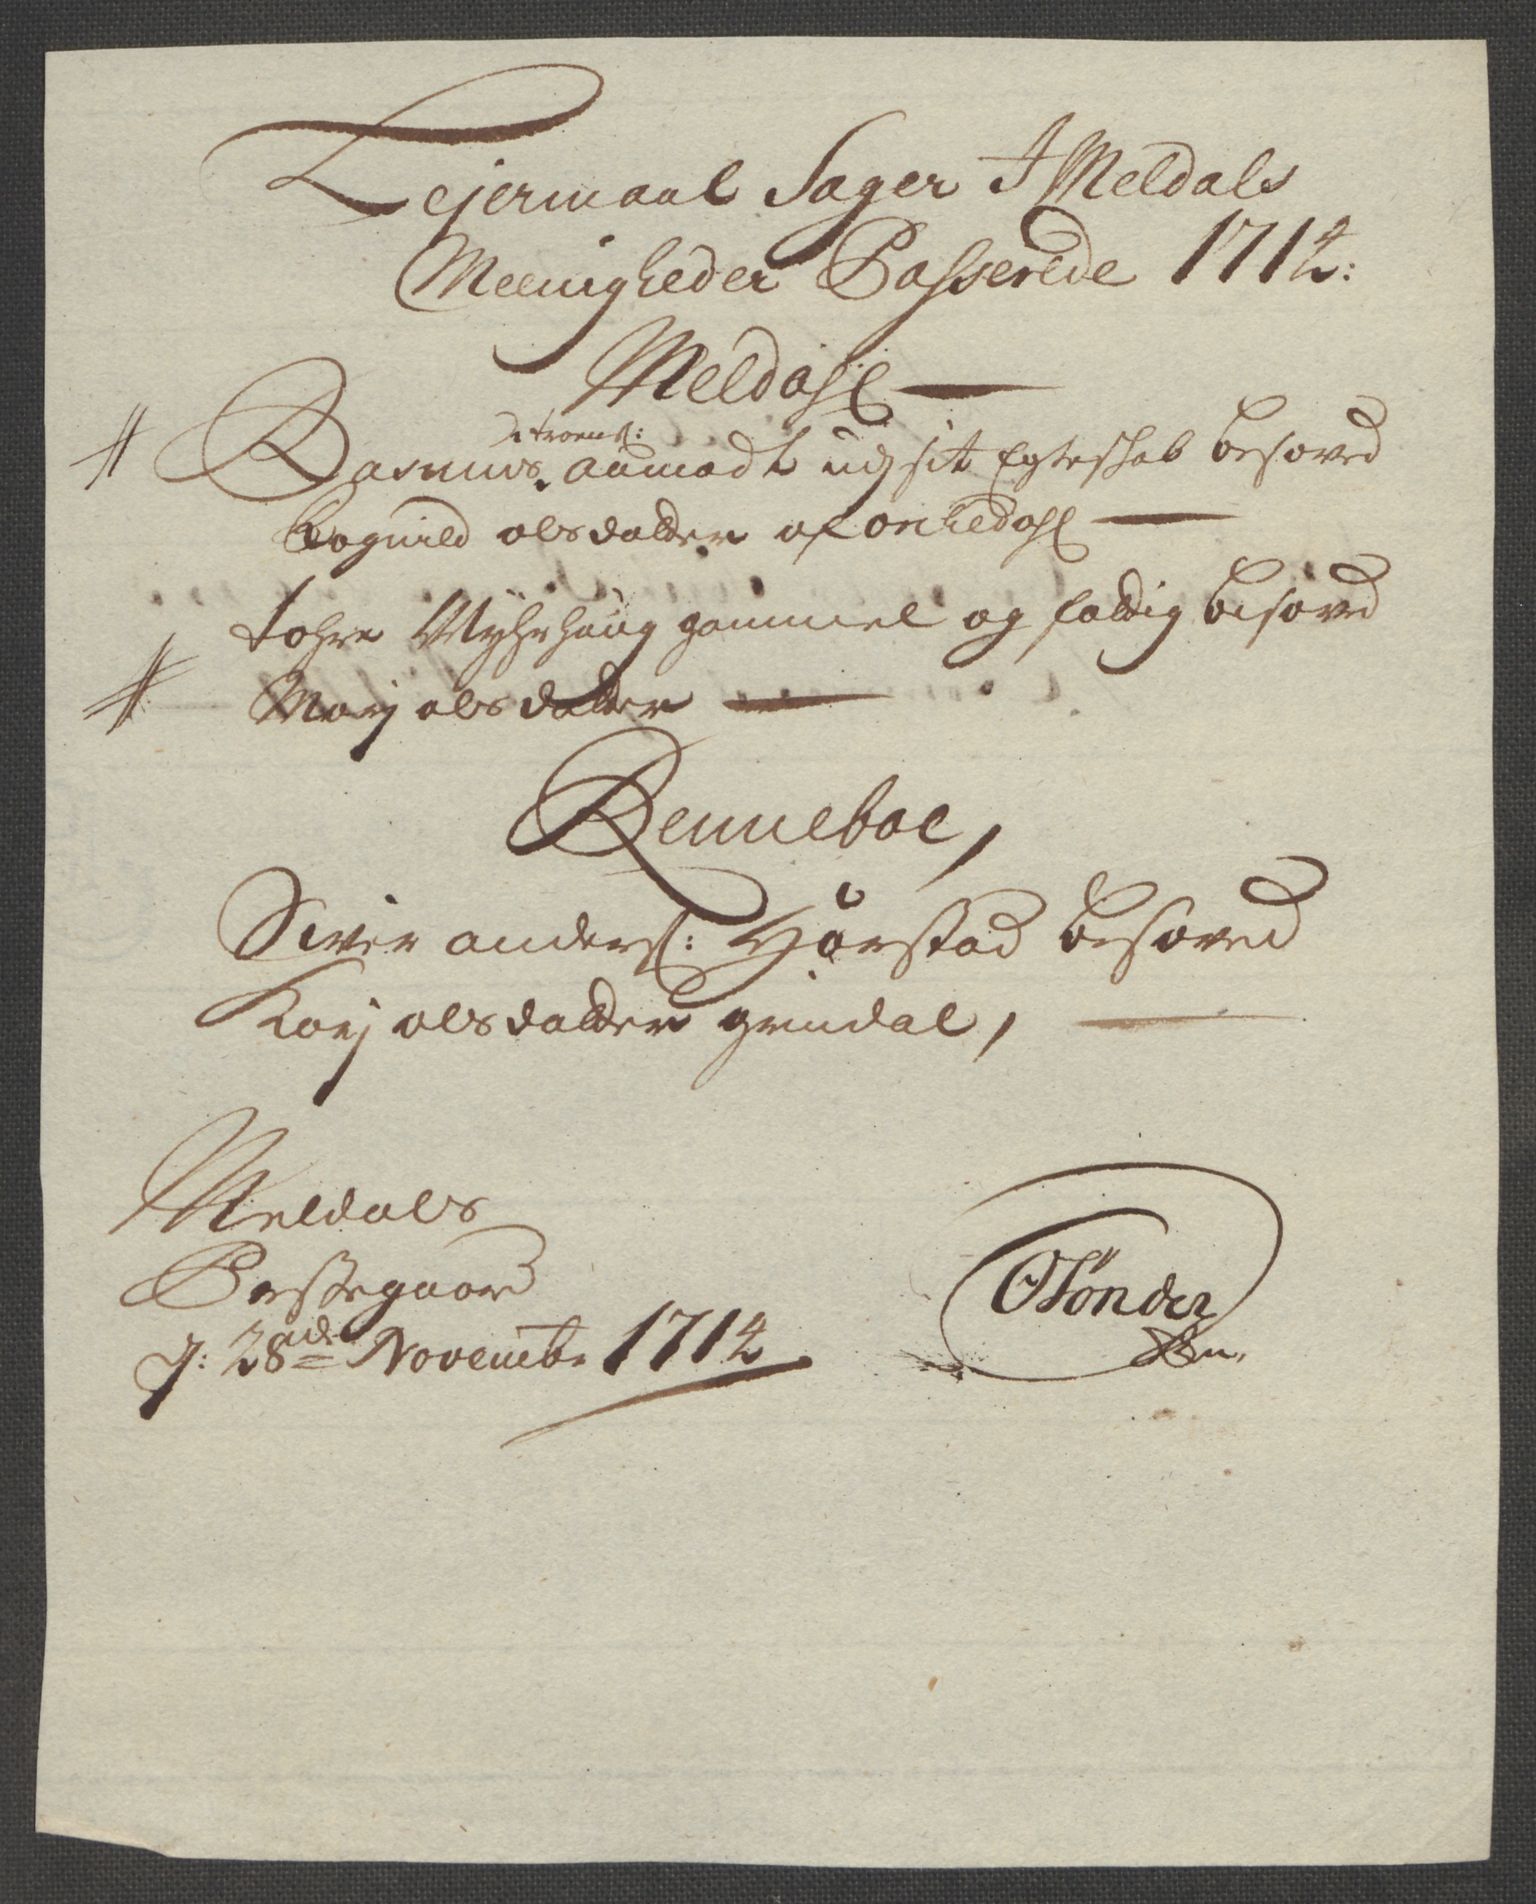 Lejermaal Sager I Meldals
Meenigheder Passerede 1712:
Meldahl
Rasmus aumodt udj sit Egteskab besoved
Raguild olsdatter af
tohre Myhrhaug gammel og fattig besoved
Marj olsdatter
Renneboe,
Siver anders: Hörstad besoved
Karj olsdatter grindal,
Meldals
Præstegaard
d: 28de Novembr 1712
OTönder